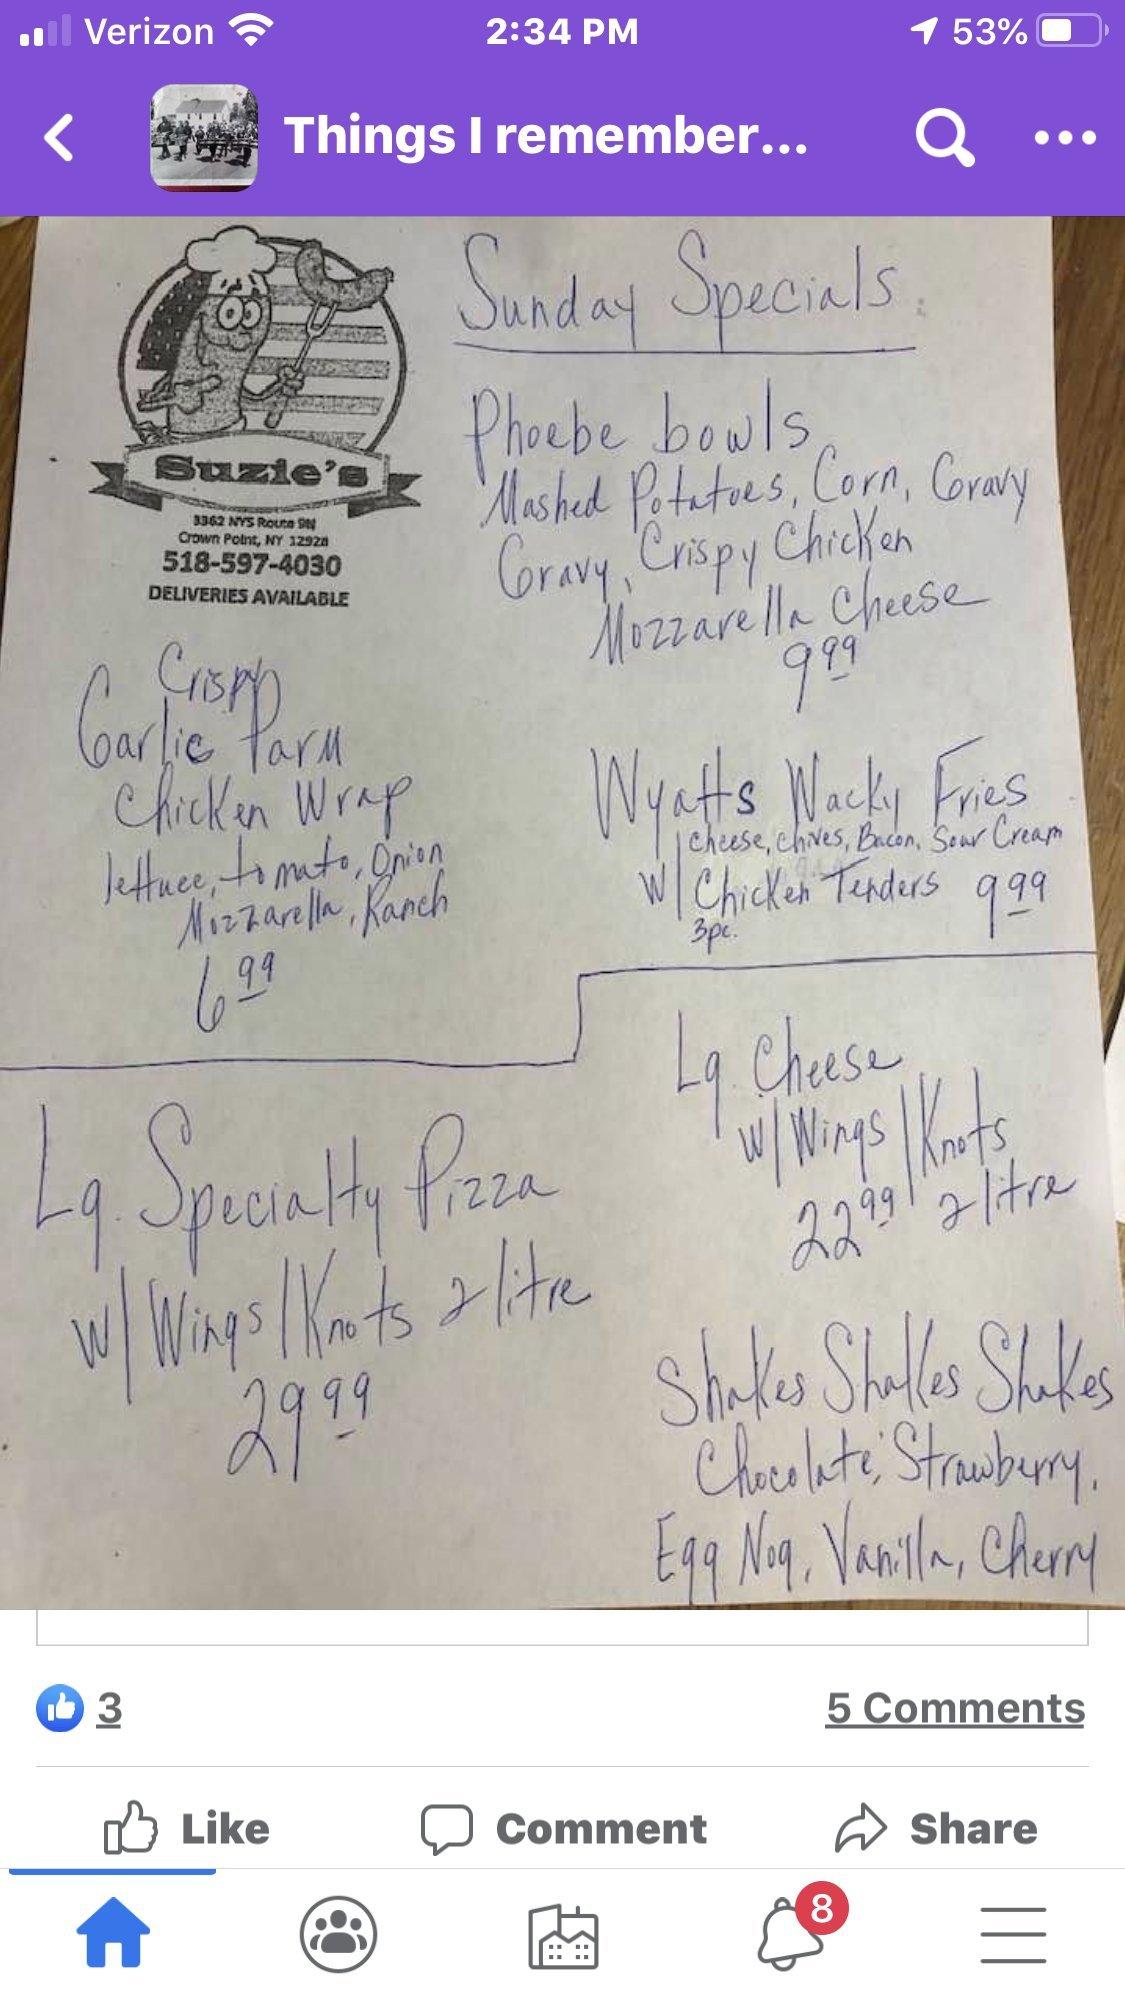 Verizon 2:34 PM 53%
Things I remember...
Suzie's
3362 NYS Route 9N
Crown Point, NY 12928
518-597-4030
DELIVERIES AVAILABLE
Sunday Specials
Phoebe bowls
Mashed Potatoes, Corn, Gravy
Gravy, Crispy Chicken
Mozzarella Cheese
9 99
Crispy
Garlic Parm
Chicken Wrap
lettuce, tomato, Onion
Mozzarella, Ranch
6 99
Wyatts Wacky Fries
Cheese, chives, Bacon, Sour Cream
W/ Chicken Tenders 9 99
3pc.
Lg. Specialty Pizza
w/ Wings / Knots 2 litre
29 99
Lg. Cheese
w/ Wings / Knots
22 99 2 litre
Shakes Shakes Shakes
Chocolate, Strawberry,
Egg Nog, Vanilla, Cherry
3 5 Comments
Like Comment Share
8